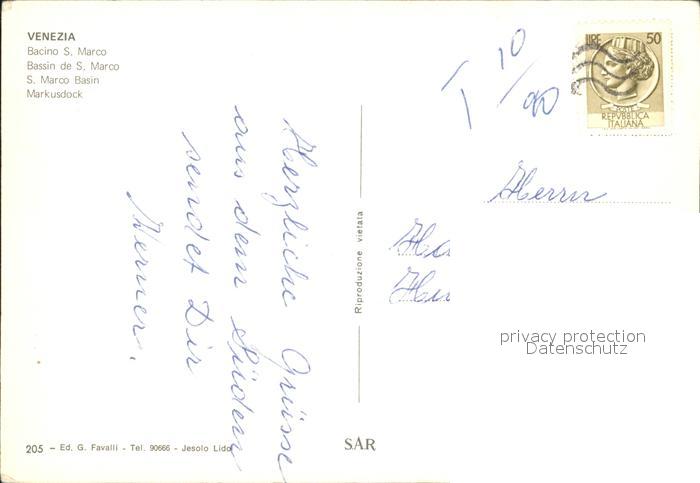 VENEZIA
Bacino S. Marco
Bassin de S. Marco
S. Marco Basin
Markusdock
Herzliche Grüsse
aus dem Süden
sendet Dir
Werner.
205 – Ed. G. Favalli - Tel. 90666 - Jesolo Lido
Riproduzione vietata
SAR
T 10/90
LIRE 50
POSTE
REPVBBLICA
ITALIANA
Herrn
privacy protection
Datenschutz